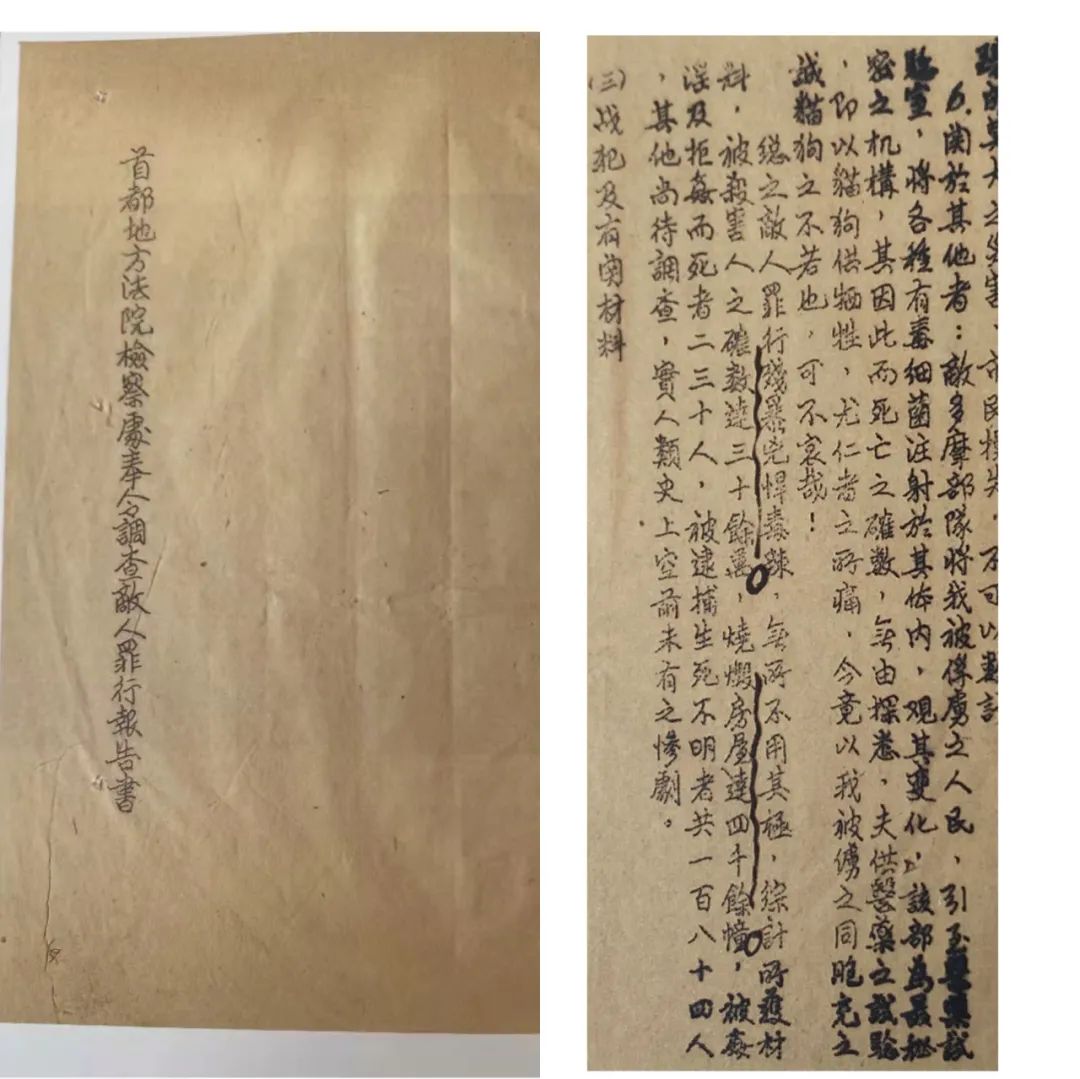 首都地方法院檢察處奉令調查敵人罪行報告書
莫大之災害、市民損失，不可以數計
6.関於其他者：敵多摩部隊將我被俘虜之人民，引至醫藥試
驗室，將各種有毒細菌注射於其体内，观其变化，該部為最秘
密之机構，其因此而死亡之確数，無由探悉，夫供醫藥之試驗
，即以貓狗供牺牲，尤仁者之所痛，今竟以我被虜之同胞充之
，誠貓狗之不若也，可不哀哉！
総之敵人罪行殘暴兇悍毒辣，無所不用其極，綜計所獲材
料，被殺害人之確数達三十餘萬，燒燬房屋達四千餘幢，被姦
淫及拒姦而死者二三十人，被逮捕生死不明者共一百八十四人
，其他尚待調查，實人類史上空前未有之慘劇。
(三)战犯及有関材料